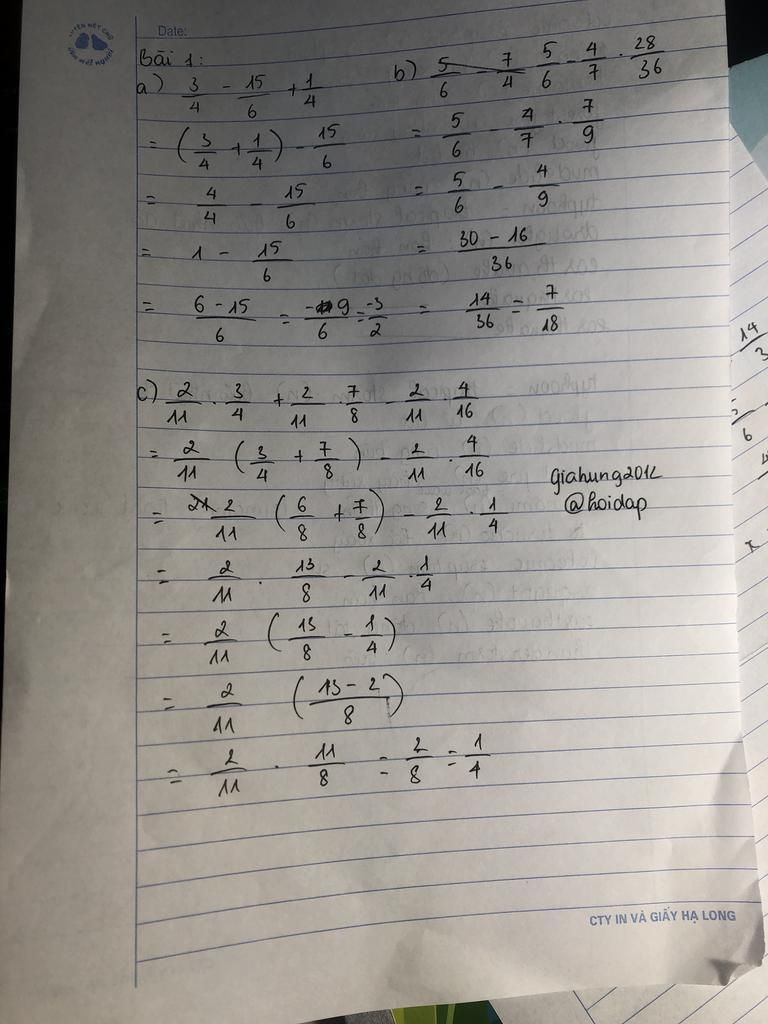 LUYỆN NÉT CHỮ
RÈN NẾT NGƯỜI
Date:
Bài 1:
a) 3/4 - 15/6 + 1/4
= (3/4 + 1/4) - 15/6
= 4/4 - 15/6
= 1 - 15/6
= (6 - 15)/6 = -9/6 = -3/2
b) 5/6 - 7/4 5/6 - 4/7 . 28/36
= 5/6 - 4/7 . 7/9
= 5/6 - 4/9
= (30 - 16)/36
= 14/36 = 7/18
c) 2/11 . 3/4 + 2/11 . 7/8 - 2/11 . 4/16
= 2/11 (3/4 + 7/8) - 2/11 . 4/16
= 2/11 (6/8 + 7/8) - 2/11 . 1/4
= 2/11 . 13/8 - 2/11 . 1/4
= 2/11 (13/8 - 1/4)
= 2/11 ((13 - 2)/8)
= 2/11 . 11/8 = 2/8 = 1/4
giahung2012
@hoidap
CTY IN VÀ GIẤY HẠ LONG